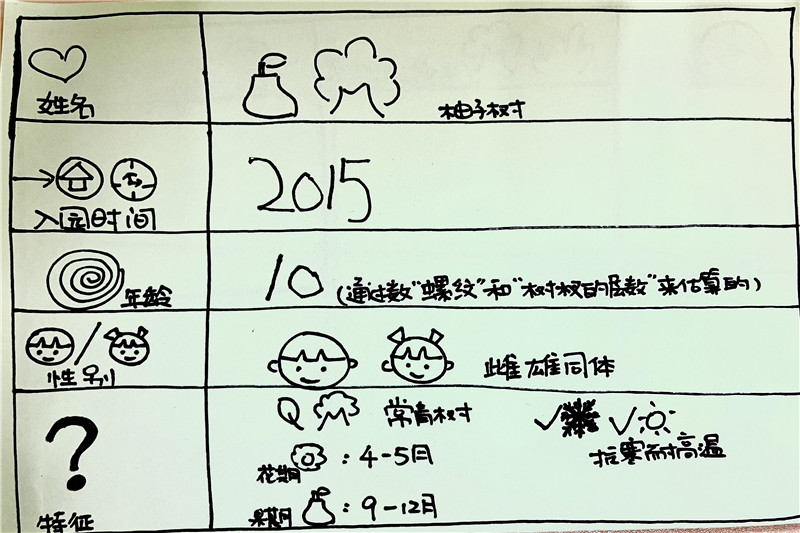 姓名
柚子树
入园时间
2015
年龄
10(通过数"螺纹"和"树杈的层数"来估算的)
性别
雌雄同体
特征
常青树
抗寒耐高温
花期:4-5月
果期:9-12月